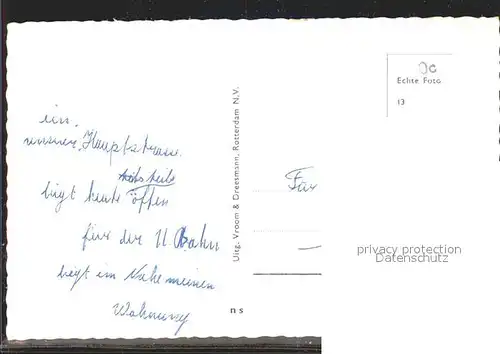 ein
unser Hauptstrasse
ligt heute öffen
für der U Bahn
legt im Nahe meinen
Wohnung
Uitg. Vroom & Dreesmann, Rotterdam N.V.
n s
Für
Echte Foto
13
privacy protection
Datenschutz